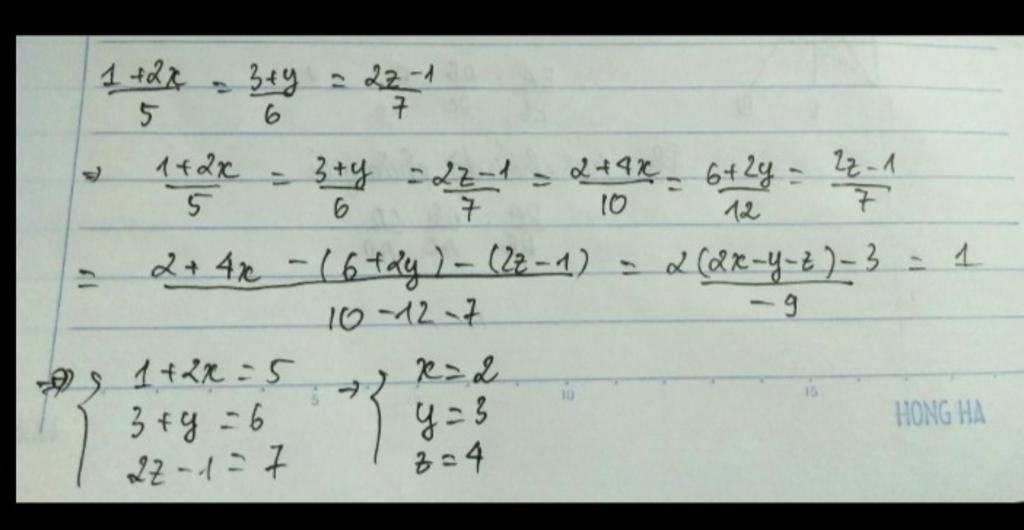 1+2x/5 = 3+y/6 = 2z-1/7
⇒ 1+2x/5 = 3+y/6 = 2z-1/7 = 2+4x/10 = 6+2y/12 = 2z-1/7
= 2+4x-(6+2y)-(2z-1)/10-12-7 = 2(2x-y-z)-3/-9 = 1
⇒ { 1+2x=5 → { x=2
3+y=6 y=3
2z-1=7 z=4
5 10 15
HONG HA